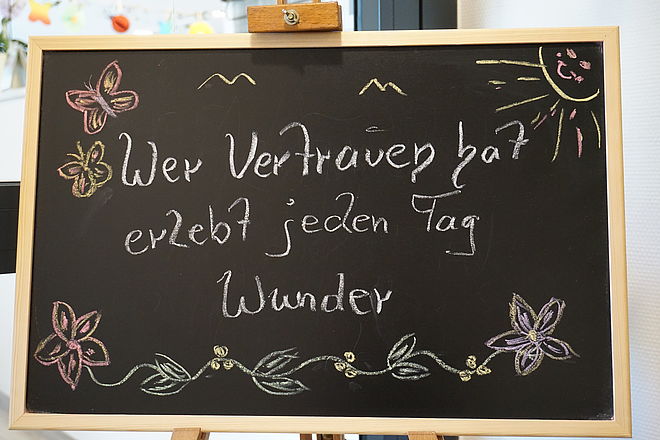 Wer Vertrauen hat
erlebt jeden Tag
Wunder